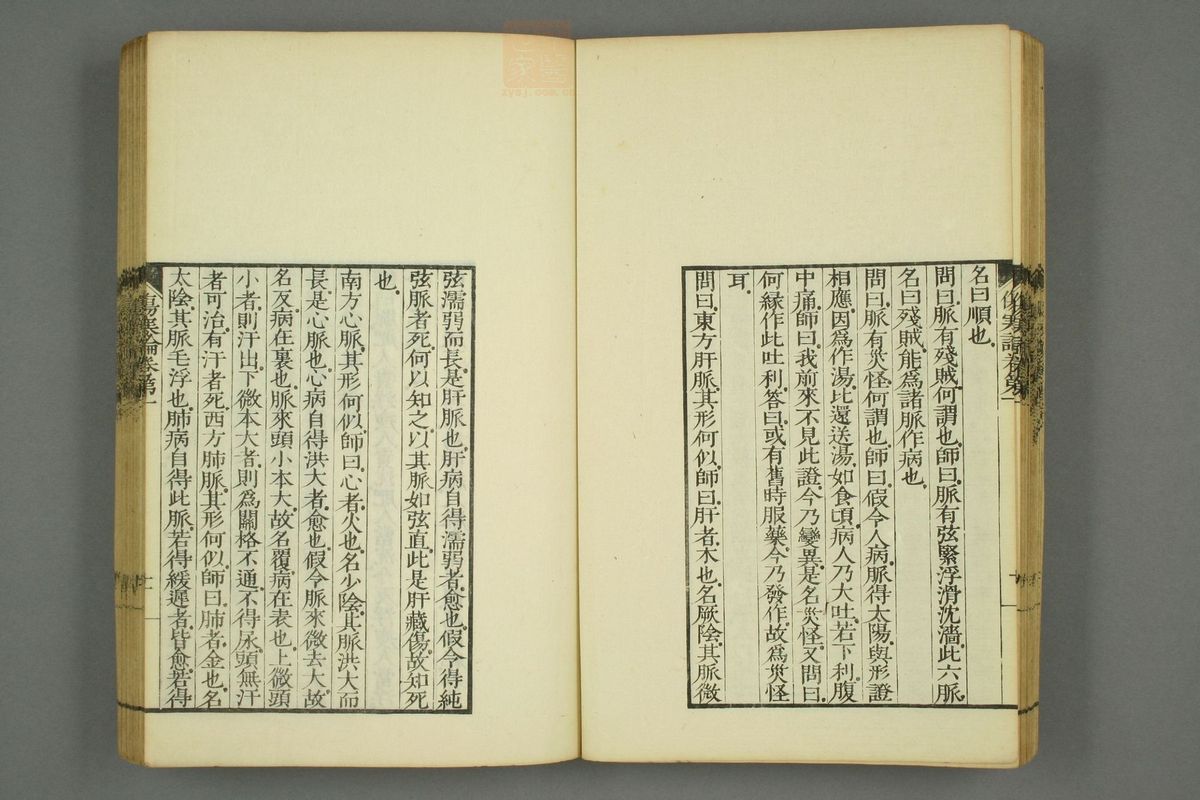 名曰順也。
問曰。脈有殘賊。何謂也。師曰。脈有弦緊浮滑沈濇。此六脈。
名曰殘賊。能爲諸脈作病也。
問曰。脈有災怪。何謂也。師曰。假令人病。脈得太陽。與形證
相應。因爲作湯。比還送湯。如食頃。病人乃大吐。若下利。腹
中痛。師曰。我前來不見此證。今乃變異。是名災怪。又問曰。
何緣作此吐利。答曰。或有舊時服藥。今乃發作。故爲災怪
耳。
問曰。東方肝脈。其形何似。師曰。肝者。木也。名厥陰。其脈微
弦濡弱而長。是肝脈也。肝病自得濡弱者。愈也。假令得純
弦脈者。死。何以知之。以其脈如弦直。此是肝藏傷。故知死
也。
南方心脈。其形何似。師曰。心者。火也。名少陰。其脈洪大而
長。是心脈也。心病自得洪大者。愈也。假令脈來微去大。故
名反。病在裏也。脈來頭小本大。故名覆。病在表也。上微頭
小者。則汗出。下微本大者。則爲關格不通。不得尿。頭無汗
者可治。有汗者死。西方肺脈。其形何似。師曰。肺者。金也。名
太陰。其脈毛浮也。肺病自得此脈。若得緩遲者皆愈。若得
傷寒論卷第一
十一
傷寒論卷第一
十
中醫
家
zysj.com.cn